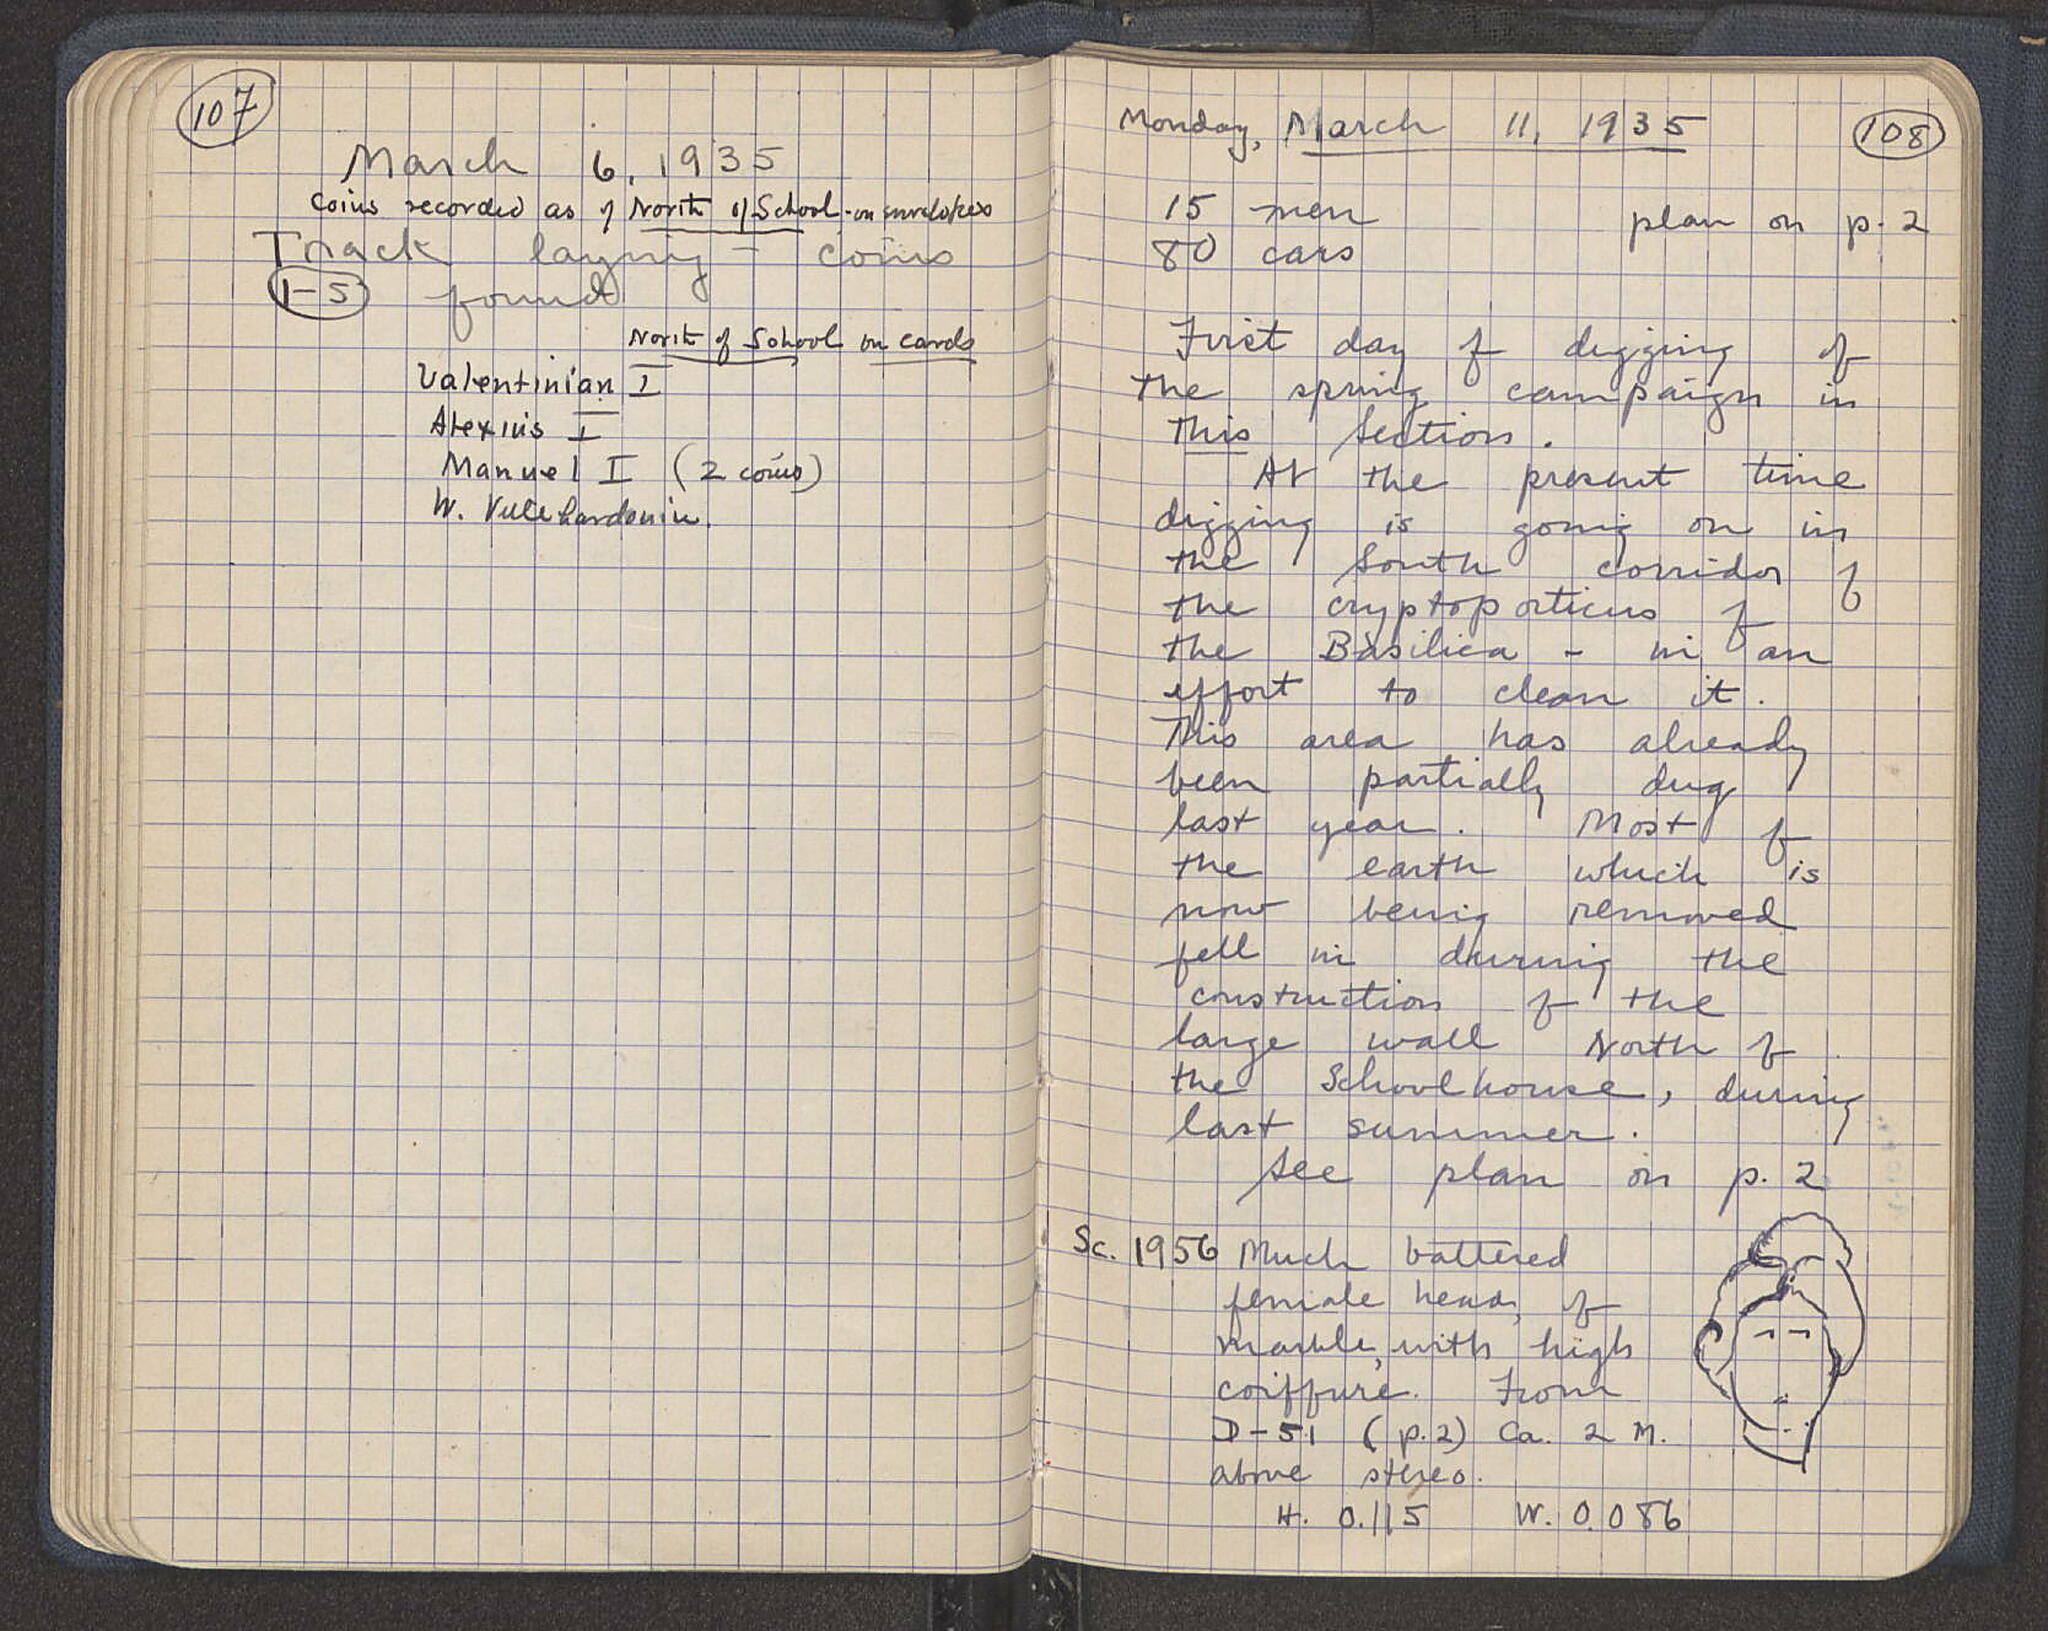 107
March 6, 1935
Coins recorded as of North of School - on envelopes
Track laying - coins
1-5 found
North of School on cards
Valentinian I
Alexius I
Manuel I (2 coins)
W. Villehardouin.
Monday, March 11, 1935
108
15 men plan on p. 2
80 cars
First day of digging of
the spring campaign in
this section.
At the present time
digging is going on in
the South corridor of
the cryptoporticus of
the Basilica - in an
effort to clean it.
This area has already
been partially dug
last year. Most of
the earth which is
now being removed
fell in during the
construction of the
large wall North of
the Schoolhouse, during
last summer.
See plan on p. 2
Sc. 1956 Much battered
female head, of
marble, with high
coiffure. From
D-51 (p.2) Ca. 2 M.
above stereo.
H. 0.115 W. 0.086